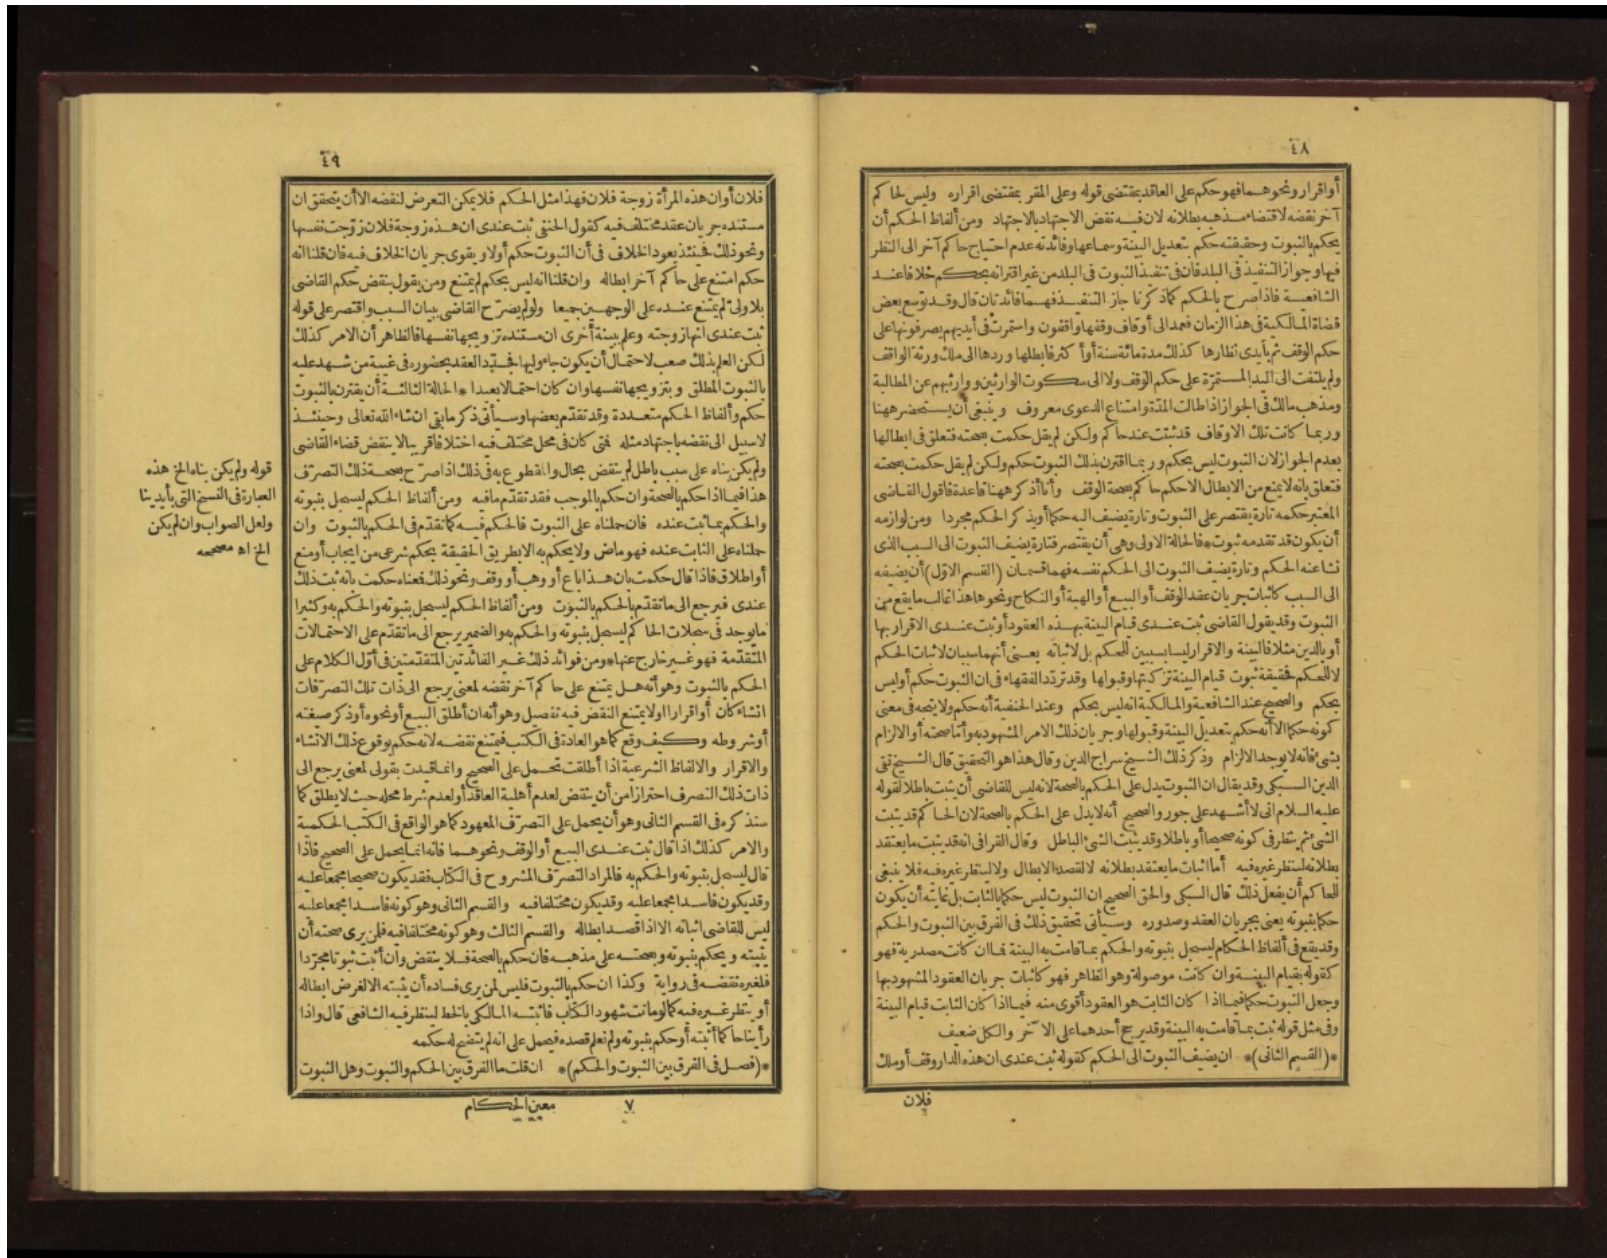 ٤٨
أواقرار ونحوهما فهو حكم على العاقد بمقتضى قوله وعلى المقر بمقتضى اقراره وليس لحاكم
آخر نقضه لاقتضاء مذهبه بطلانه لان فيه نقض الاجتهاد بالاجتهاد ومن ألفاظ الحكم أن
يحكم بالثبوت وحقيقته حكم بتعديل البينة وسماعها وفائدته عدم احتياج حاكم آخر الى النظر
فيها وجواز التنفيذ فى البلد فان فى تنفيذ الثبوت فى البلد من غير اقترانه بحكم خلافا عند
الشافعية فاذا صرح بالحكم كما ذكرنا جاز التنفيذ فهما فائدتان قال وقد توسع بعض
قضاة المالكية فى هذا الزمان فعمد الى أوقاف وقفها واقفون واستمرت فى أيديهم يصرفونها على
حكم الوقف ثم بأيدى نظارها كذلك مدة مائة سنة أو أكثر فابطلها وردها الى ملك ورثة الواقف
ولم يلتفت الى اليد المستمرة على حكم الوقف ولا الى سكوت الوارثين ووارثيهم عن المطالبة
ومذهب مالك فى الجواز اذا طالت المدة وامتناع الدعوى معروف وينبغى أن يستحضر ههنا
وربما كانت تلك الاوقاف قد ثبتت عند حاكم ولكن لم يقل حكمت بصحته فتعلق فى ابطالها
بعدم الجواز لان الثبوت ليس بحكم وربما اقترن بذلك الثبوت حكم ولكن لم يقل حكمت بصحته
فتعلق بانه لا يمنع من الابطال الا حكم حاكم بصحة الوقف وأنا أذكر ههنا قاعدة فاقول القاضى
المعتبر حكمه تارة يقتصر على الثبوت وتارة يضيف اليه حكما أو يذكر الحكم مجردا ومن لوازمه
أن يكون قد تقدمه ثبوت * فالحالة الاولى وهى أن يقتصر فتارة يضيف الثبوت الى السبب الذى
نشأ عنه الحكم وتارة يضيف الثبوت الى الحكم نفسه فهما قسمان (القسم الاول) أن يضيفه
الى السبب كاثبات جريان عقد الوقف أو البيع أو الهبة أو النكاح ونحوها هذا غالب ما يقع من
الثبوت وقد يقول القاضى ثبت عندى قيام البينة بهذه العقود أو ثبت عندى الاقرار بها
أو بالدين مثلا فالبينة والاقرار ليسا بسببين للحكم بل لاثباته يعنى أنهما سببان لاثبات الحكم
لا للحكم فحقيقة ثبوت قيام البينة تزكيتها وقبولها وقد تردد الفقهاء فى ان الثبوت حكم أو ليس
بحكم والصحيح عند الشافعية والمالكية انه ليس بحكم وعند الحنفية أنه حكم ولا يتجه فى معنى
كونه حكما الا أنه حكم بتعديل البينة وقبولها وجريان ذلك الامر المشهود به وأما صحته أو الالزام
بشئ فانه لا يوجد الالزام وذكر ذلك الشيخ سراج الدين وقال هذا هو التحقيق قال الشيخ تقى
الدين السبكى وقد يقال ان الثبوت يدل على الحكم بالصحة لانه ليس للقاضى أن يثبت باطلا لقوله
عليه السلام انى لا أشهد على جور والصحيح أنه لا يدل على الحكم بالصحة لان الحاكم قد يثبت
الشئ ثم ينظر فى كونه صحيحا أو باطلا وقد يثبت الشئ الباطل وقال القرافى انه قد يثبت ما يعتقد
بطلانه لينظر غيره فيه أما اثبات ما يعتقد بطلانه لا لقصد الابطال ولا لينظر غيره فيه فلا ينبغى
للحاكم أن يفعل ذلك قال السبكى والحق الصحيح ان الثبوت ليس حكما بالثابت بل غايته أن يكون
حكما بثبوته يعنى بجريان العقد وصدوره وسيأتى تحقيق ذلك فى الفرق بين الثبوت والحكم
وقد يقع فى ألفاظ الحكام ليسجل بثبوته والحكم بما قامت به البينة فما ان كانت مصدرية فهو
كقوله بقيام البينة وان كانت موصولة وهو الظاهر فهو كاثبات جريان العقود المشهود بها
وجعل الثبوت حكما فيما اذا كان الثابت هو العقود أقوى منه فيما اذا كان الثابت قيام البينة
وفى مثل قوله ثبت بما قامت به البينة وقد يرجح أحدهما على الآخر والكل ضعيف
*(القسم الثانى)* ان يضيف الثبوت الى الحكم كقوله ثبت عندى ان هذه الدار وقف أو ملك
فلان
٤٩
فلان أو ان هذه المرأة زوجة فلان فهذا مثل الحكم فلا يمكن التعرض لنقضه الا أن يتحقق ان
مستنده جريان عقد مختلف فيه كقول الحنفى ثبت عندى ان هذه زوجة فلان زوجت نفسها
ونحو ذلك فحينئذ يعود الخلاف فى أن الثبوت حكم أولا ويقوى جريان الخلاف فيه فان قلنا انه
حكم امتنع على حاكم آخر ابطاله وان قلنا انه ليس بحكم لم يمتنع ومن يقول بنقض حكم القاضى
بلا ولى لم يمتنع عنده على الوجهين جميعا ولو لم يصرح القاضى ببيان السبب واقتصر على قوله
ثبت عندى انها زوجته وعلم ببينة أخرى ان مستنده تزويجها نفسها فالظاهر أن الامر كذلك
لكن العلم بذلك صعب لاحتمال أن يكون جاء وليها فجدد العقد بحضوره فى غيبة من شهد عليه
بالثبوت المطلق وبتزويجها نفسها وان كان احتمالا بعيدا * الحالة الثالثة أن يقترن بالثبوت
حكم وألفاظ الحكم متعددة وقد تقدم بعضها وسيأتى ذكر ما بقى ان شاء الله تعالى وحينئذ
لا سبيل الى نقضه باجتهاد مثله فتى كان فى محل مختلف فيه اختلافا قريبا لا ينقض قضاء القاضى
ولم يكن بناه على سبب باطل لم ينقض بحال والمقطوع به فى ذلك اذا صرح بصحة ذلك التصرف
هذا فيما اذا حكم بالصحة وان حكم بالموجب فقد تقدم ما فيه ومن ألفاظ الحكم ليسجل بثبوته
والحكم بما ثبت عنده فان حملناه على الثبوت فالحكم فيه كما تقدم فى الحكم بالثبوت وان
حملناه على الثابت عنده فهو ماض ولا يحكم به الا بطريق الحقيقة بحكم شرعى من ايجاب أو منع
أو اطلاق فاذا قال حكمت بان هذا باع أو وهب أو وقف ونحو ذلك فمعناه حكمت بانه ثبت ذلك
عندى فيرجع الى ما تقدم بالحكم بالثبوت ومن ألفاظ الحكم ليسجل بثبوته والحكم به وكثيرا
ما يوجد فى سجلات الحاكم ليسجل بثبوته والحكم به والضمير يرجع الى ما تقدم على الاحتمالات
المتقدمة فهو غير خارج عنها * ومن فوائد ذلك غير الفائدتين المتقدمتين فى أول الكلام على
الحكم بالثبوت وهو أنه هل يمتنع على حاكم آخر نقضه لمعنى يرجع الى ذات تلك التصرفات
انشاء كان أو اقرارا أولا يمتنع النقض فيه تفصيل وهو أنه ان أطلق البيع أو نحوه أو ذكر صيغته
أو شروطه وكيف وقع كما هو العادة فى الكتب فيمتنع نقضه لانه حكم بوقوع ذلك الانشاء
والاقرار والالفاظ الشرعية اذا أطلقت تحمل على الصحيح وانما قيدت بقولى لمعنى يرجع الى
ذات ذلك التصرف احترازا من أن ينقض لعدم أهلية العاقد أو لعدم شرط محله حيث لا يطلق كما
سنذكره فى القسم الثانى وهو أن يحمل على التصرف المعهود كما هو الواقع فى الكتب الحكمية
والامر كذلك اذا قال ثبت عندى البيع أو الوقف ونحوهما فانه انما يحمل على الصحيح فاذا
قال ليسجل بثبوته والحكم به فالمراد التصرف المشروح فى الكتاب فقد يكون صحيحا مجمعا عليه
وقد يكون فاسدا مجمعا عليه وقد يكون مختلفا فيه والقسم الثانى وهو كونه فاسدا مجمعا عليه
ليس للقاضى اثباته الا اذا قصد ابطاله والقسم الثالث وهو كونه مختلفا فيه فلمن يرى صحته أن
يثبته ويحكم بثبوته وبصحته على مذهبه فان حكم بالصحة فلا ينقض وان أثبت ثبوتا مجردا
فلغيره نقضه فى رواية وكذا ان حكم بالثبوت فليس لمن يرى فساده أن يثبته الا لغرض ابطاله
أو ينظر غيره فيه كما لو مانت شهود الكتاب فاثبته المالكى بالخط لينظر فيه الشافعى قال واذا
رأينا حاكما أثبته أو حكم بثبوته ولم نعلم قصده فيحمل على انه لم يتضح له حكمه
*(فصل فى الفرق بين الثبوت والحكم)* ان قلت ما الفرق بين الحكم والثبوت وهل الثبوت
٧ معين الحكام
قوله ولم يكن بناه الخ هذه
العبارة فى النسخ التى بأيدينا
ولعل الصواب وان لم يكن
الخ اه مصححه